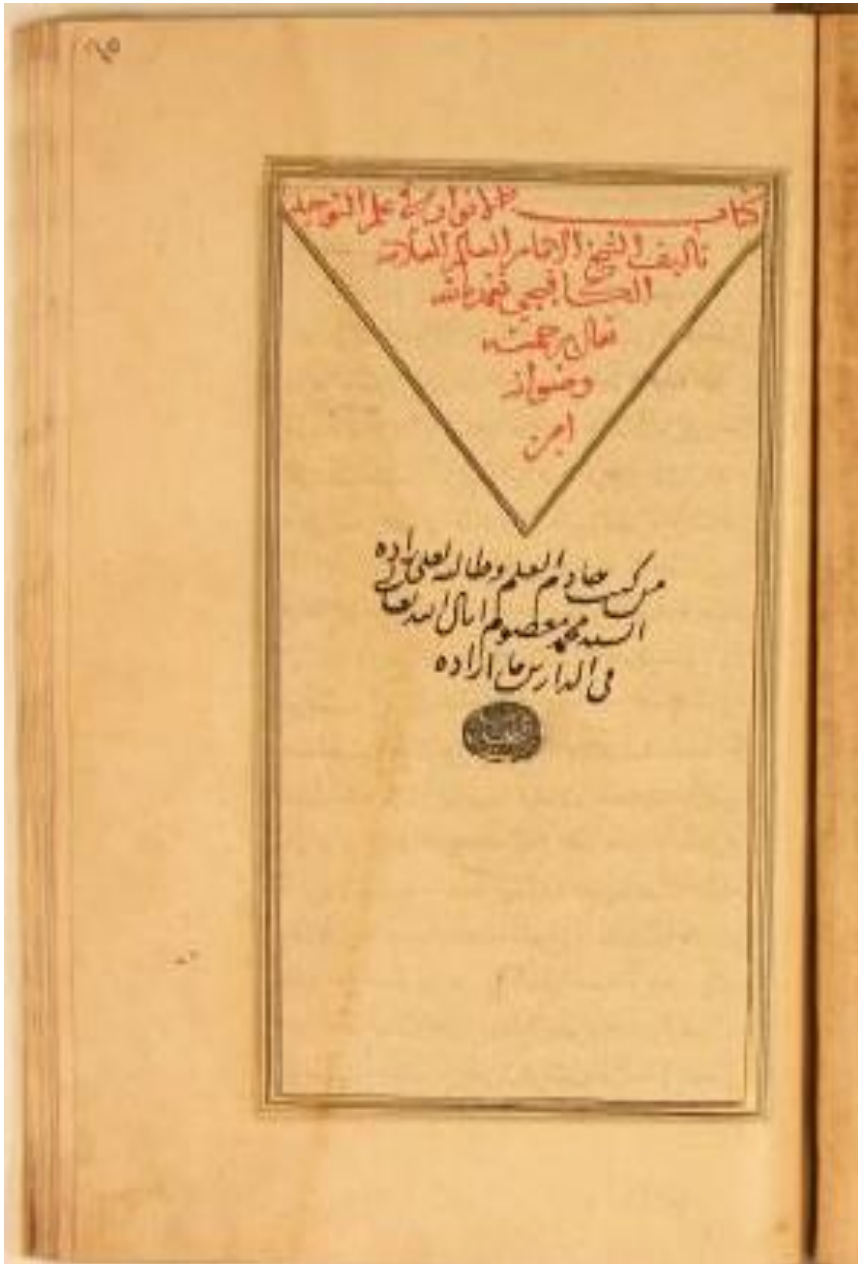 كتاب الانوار في علم التوحيد
تاليف الشيخ الامام العالم العلامة
الكافيجي تغمده الله
تعالى برحمته
ورضوانه
امين
من كتب خادم العلم وطالبه
السيد محمد معصوم انال الله تعالى
في الدارين ما اراده